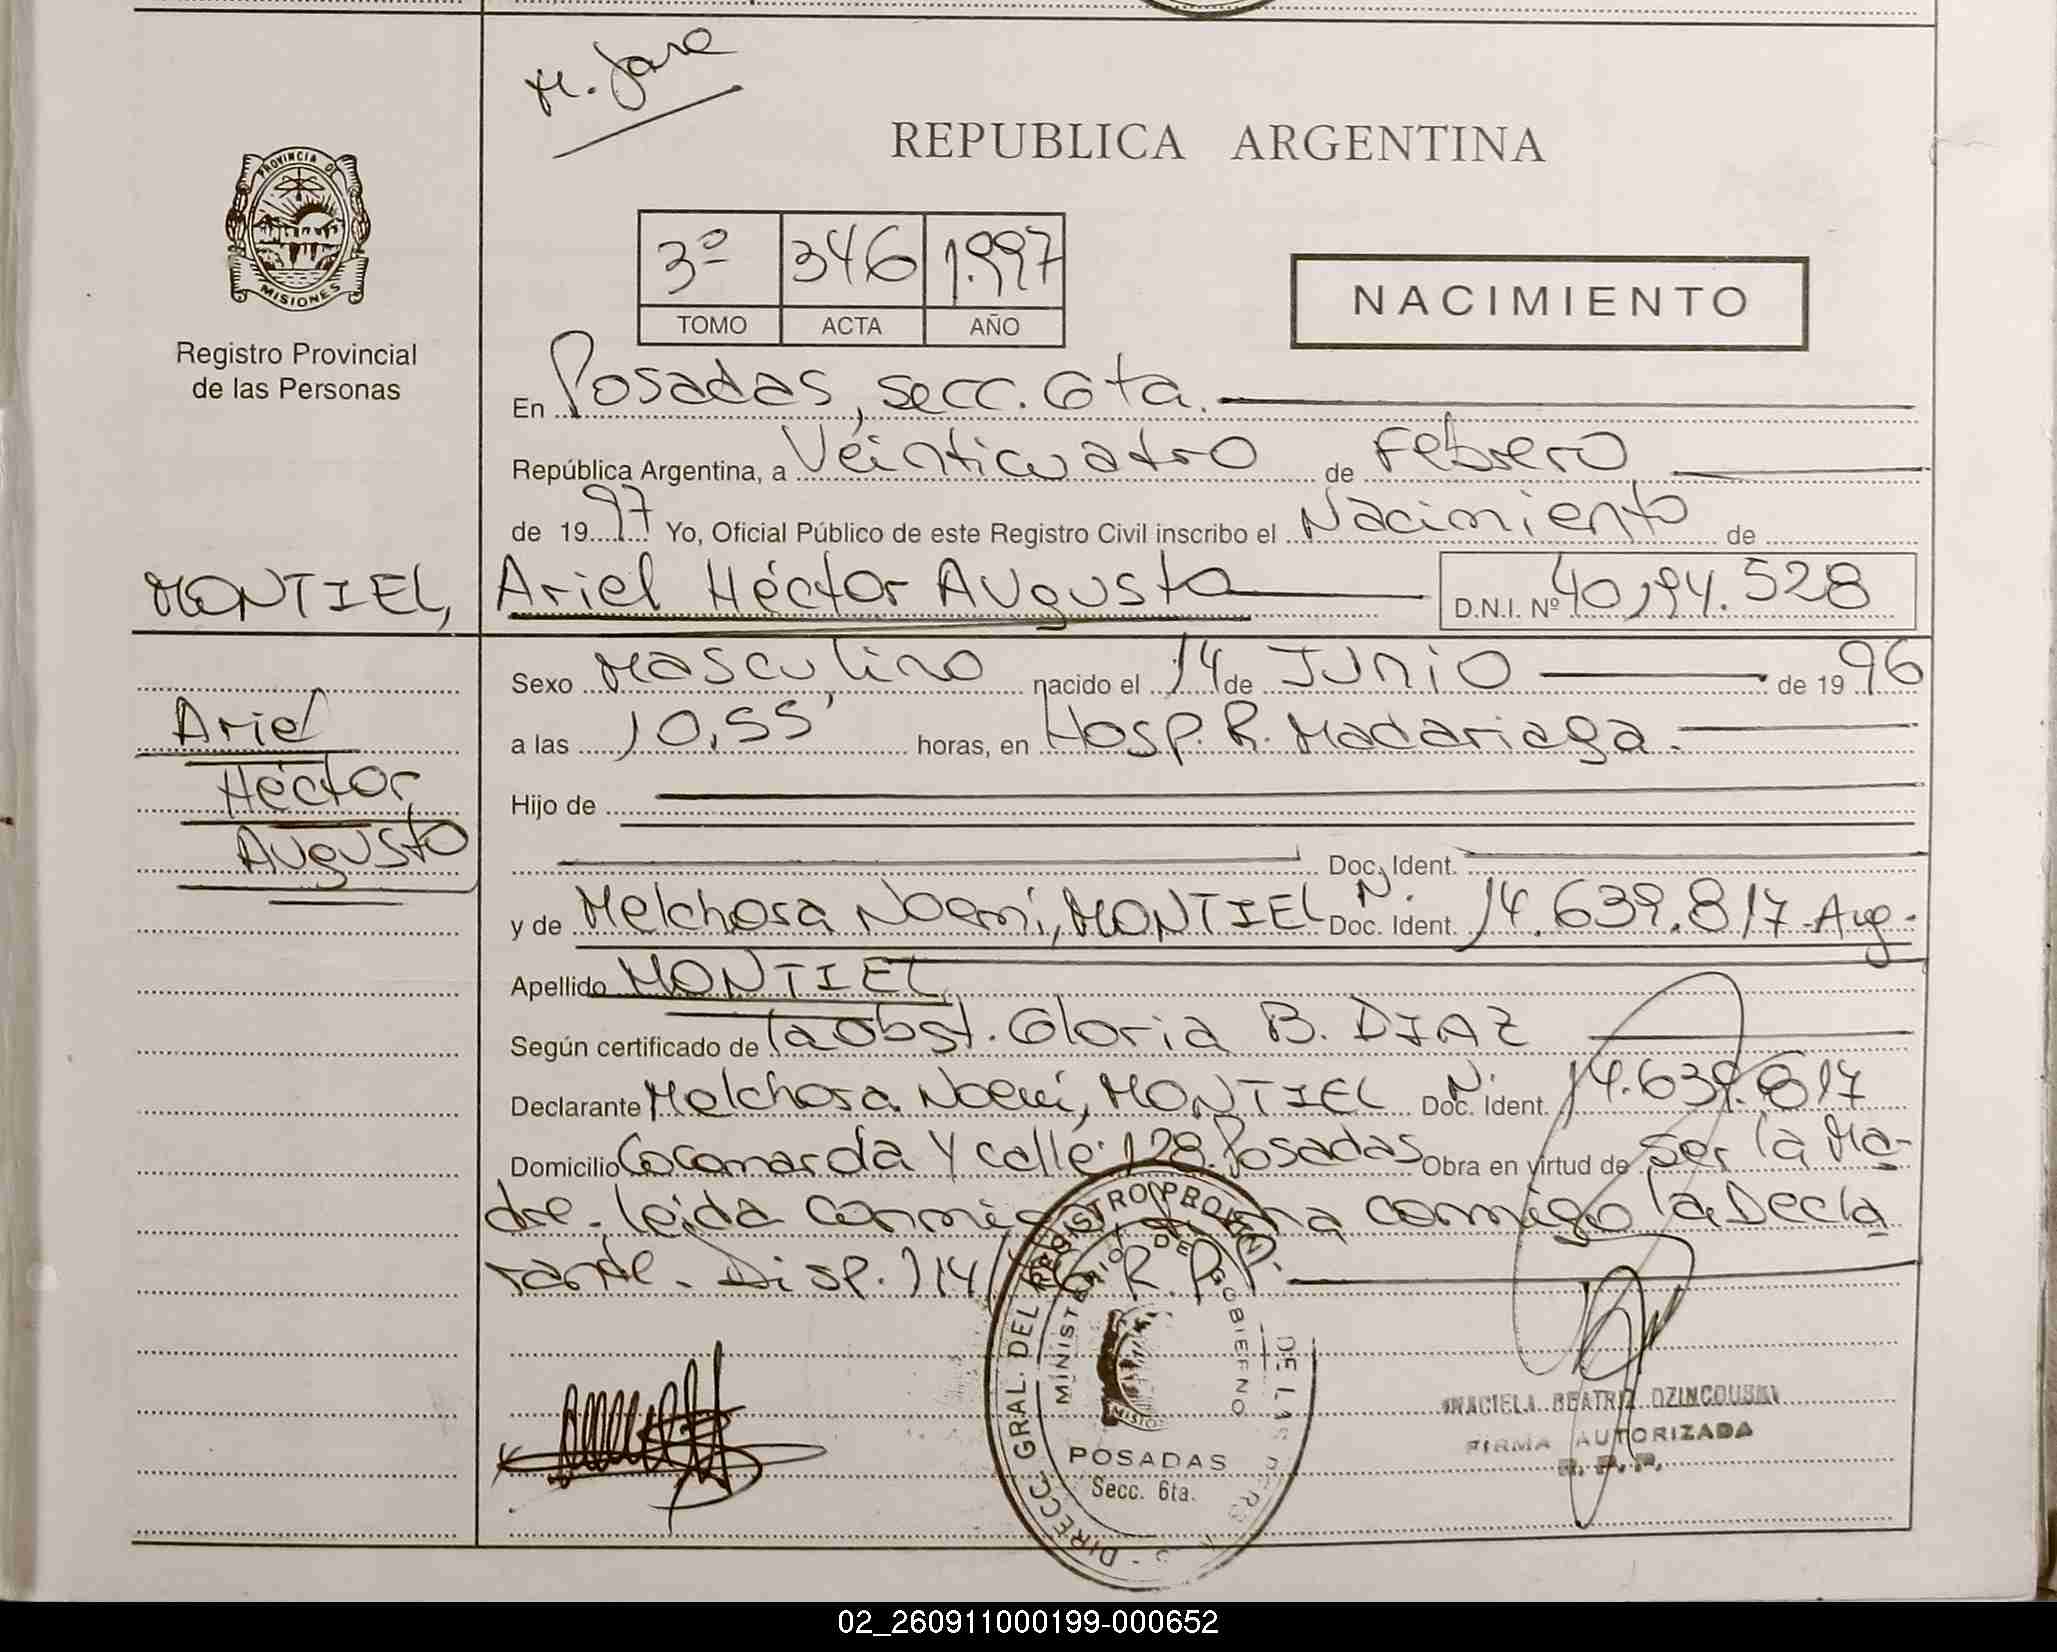 M. Jara
PROVINCIA DE
MISIONES
Registro Provincial
de las Personas
REPUBLICA ARGENTINA
3º 346 1.997
TOMO ACTA AÑO
NACIMIENTO
En Posadas, secc. 6ta.
República Argentina, a Veinticuatro de Febrero
de 19 97 Yo, Oficial Público de este Registro Civil inscribo el Nacimiento de
MONTIEL, Ariel Héctor Augusto D.N.I. Nº 40,194.528
Sexo Masculino nacido el 14 de Junio de 19 96
Ariel
a las 10,55' horas, en Hosp. R. Madariaga.
Héctor
Hijo de
Augusto
Doc. Ident.
y de Melchora Noemí, MONTIEL Doc. Ident. N. 14.639.817 - Arg.
Apellido MONTIEL
Según certificado de la obst. Gloria B. DIAZ
Declarante Melchora Noemí, MONTIEL Doc. Ident. N. 14.639.817
Domicilio Cocomarola y calle 128. Posadas Obra en virtud de ser la Ma-
dre. leida conmigo la Decla
rante. Disp. 114 R.P.P.
DIRECC. GRAL. DEL REGISTRO PROVIN DE LAS
MINISTERIO DE GOBIERNO
POSADAS
Secc. 6ta.
GRACIELA BEATRIZ DZINCOUSKI
FIRMA AUTORIZADA
R. P. P.
02_260911000199-000652